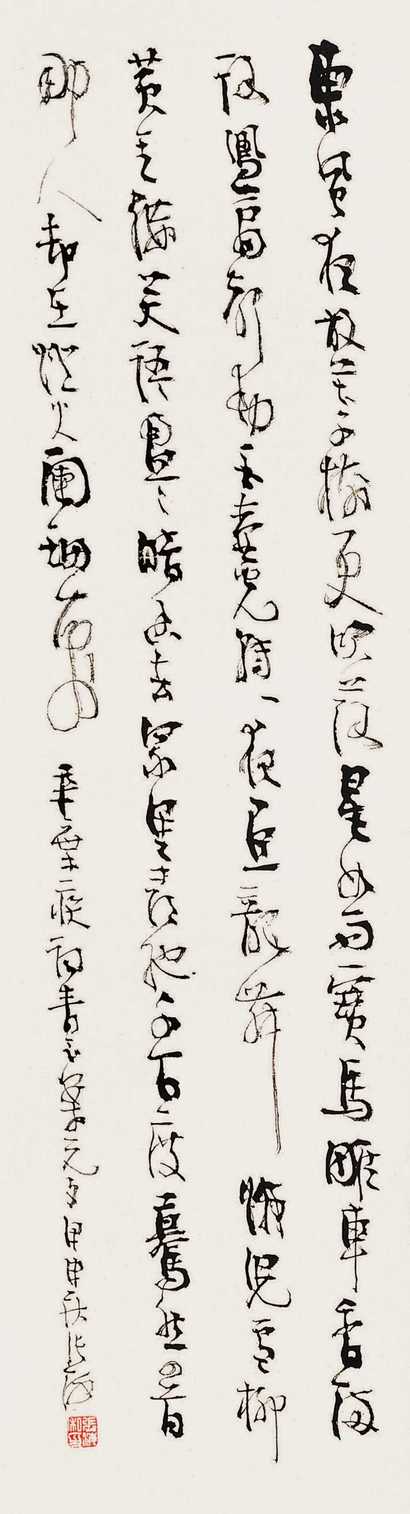 東風夜放花千樹更吹落星如雨寶馬雕車香滿
路鳳簫聲動玉壺光轉一夜魚龍舞 蛾兒雪柳
黃金縷笑語盈〻暗香去衆里尋他千百度驀然回首
那人却在燈火闌珊處 辛棄疾詞青玉案元夕甲申秋張海